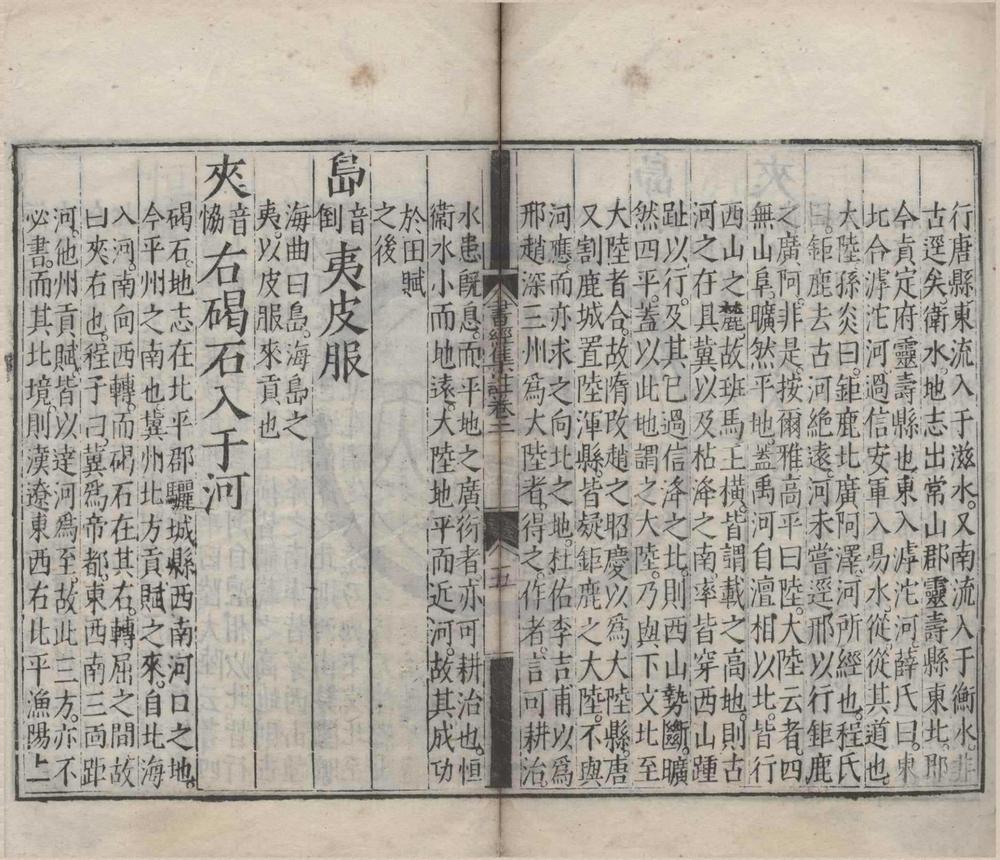 行唐縣東流入于滋水。又南流入于衡水。非
古逕矣。衛水。地志出常山郡靈壽縣東北。卽
今眞定府靈壽縣也。東入滹沱河。薛氏曰。東
北合滹沱河。過信安軍入易水。從。從其道也。
大陸孫炎曰。鉅鹿北廣阿澤。河所經也。程氏
曰。鉅鹿去古河絶遠。河未嘗逕邢以行鉅鹿
之廣阿。非是。按爾雅。高平曰陸。大陸云者。四
無山阜。曠然平地。蓋禹河自澶相以北。皆行
西山之麓。故班馬王橫。皆謂載之高地。則古
河之在貝冀以及枯洚之南。率皆穿西山踵
趾以行。及其已過信洚之北。則西山勢斷。曠
然四平。蓋以此地謂之大陸。乃與下文北至
大陸者合。故隋改趙之昭慶以爲大陸縣。唐
又割鹿城置陸渾縣。皆疑鉅鹿之大陸。不與
河應。而亦求之向北之地。杜佑李吉甫以爲
邢趙深三州爲大陸者。得之。作者。言可耕治。
書經集註卷二
五
水患旣息。而平地之廣衍者。亦可耕治也。恒
衞水小而地遠。大陸地平而近河。故其成功
於田賦
之後
島音倒夷皮服
海曲曰島。海島之
夷以皮服來貢也
夾音協右碣石入于河
碣石。地志在北平郡驪城縣西南河口之地。
今平州之南也。冀州北方貢賦之來。自北海
入河。南向西轉。而碣石在其右。轉屈之間。故
曰夾右也。程子曰。冀爲帝都。東西南三面距
河。他州貢賦。皆以達河爲至。故此三方。亦不
必書。而其北境。則漢遼東西右北平漁陽上